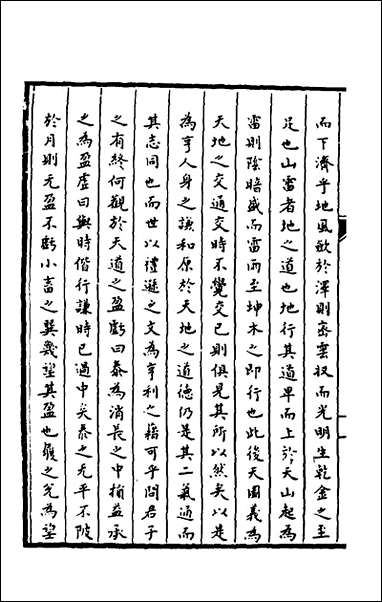 而下濟乎地風散於澤則密雲收而光明生乾金之至
足也山雷者地之道也地行其道卑而上於天山起為
雷則陰暗盛而雷雨至坤木之即行也此後天圖義為
天地之交通交時不覺交已則俱見其所以然矣以是
為亨人身之謙和原於天地之道德仍是其二氣通而
其志同也而世以禮遜之文為亨利之藉可乎問君子
之有終何觀於天道之盈虧曰泰為消長之中損益承
之為盈虛曰與時偕行謙時已過中矣泰之无平不陂
於月則无盈不虧小畜之巽幾望其盈也履之兌為望